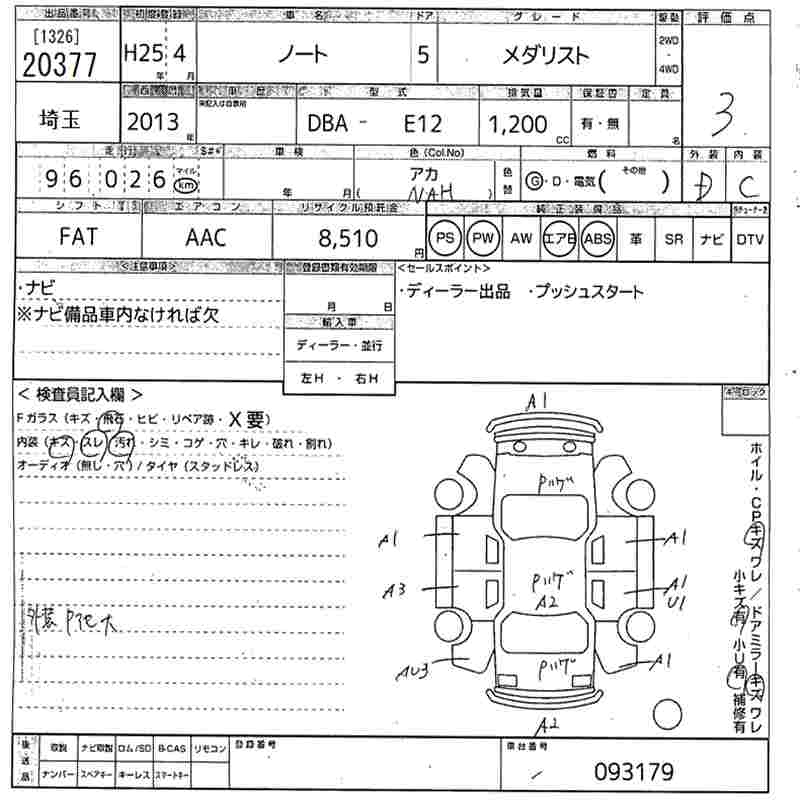 出品番号 初度登録 車名 ドア グレード 駆動 評価点
[1326]
20377 H25年 4月 ノート 5 メダリスト 2WD・4WD 3
車歴 型式 排気量 保証書 定員
埼玉 2013年 DBA - E12 1,200cc 有・無 名
走行 車検 色(Col.No) 燃料 外装 内装
96026 マイル km 年 月 アカ NAH 色替 G・D・電気(その他) D C
シフト エアコン リサイクル預託金 純正装備品
FAT AAC 8,510円 PS PW AW エアB ABS 革 SR ナビ DTV
<注意事項> 登録書類有効期限 <セールスポイント>
・ナビ
※ナビ備品車内なければ欠
月 日
・ディーラー出品 ・プッシュスタート
輸入車
ディーラー・並行
左H・右H
<検査員記入欄>
Fガラス(キズ・飛石・ヒビ・リペア跡・X要)
内装(キズ・スレ・汚れ・シミ・コゲ・穴・キレ・破れ・割れ)
オーディオ(無し・穴)/タイヤ(スタッドレス)
キミロック
A1
Pハゲ
A1 A1
Pハゲ
A3 A2 A1
U1
AU3 Pハゲ A1
A2
ホイル・CPキズワレ/ドアミラーキズワレ
小キズ有/小U有 補修有
後送品 取説 ナビ取説 ロム/SD B-CAS リモコン 登録番号 車台番号
ナンバー スペアキー キーレス スマートキー
093179